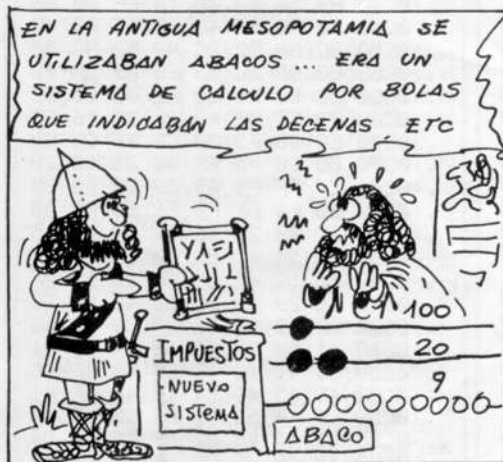 EN LA ANTIGUA MESOPOTAMIA SE
UTILIZABAN ABACOS ... ERA UN
SISTEMA DE CALCULO POR BOLAS
QUE INDICABAN LAS DECENAS ETC
100
20
9
IMPUESTOS
NUEVO
SISTEMA
ABACO